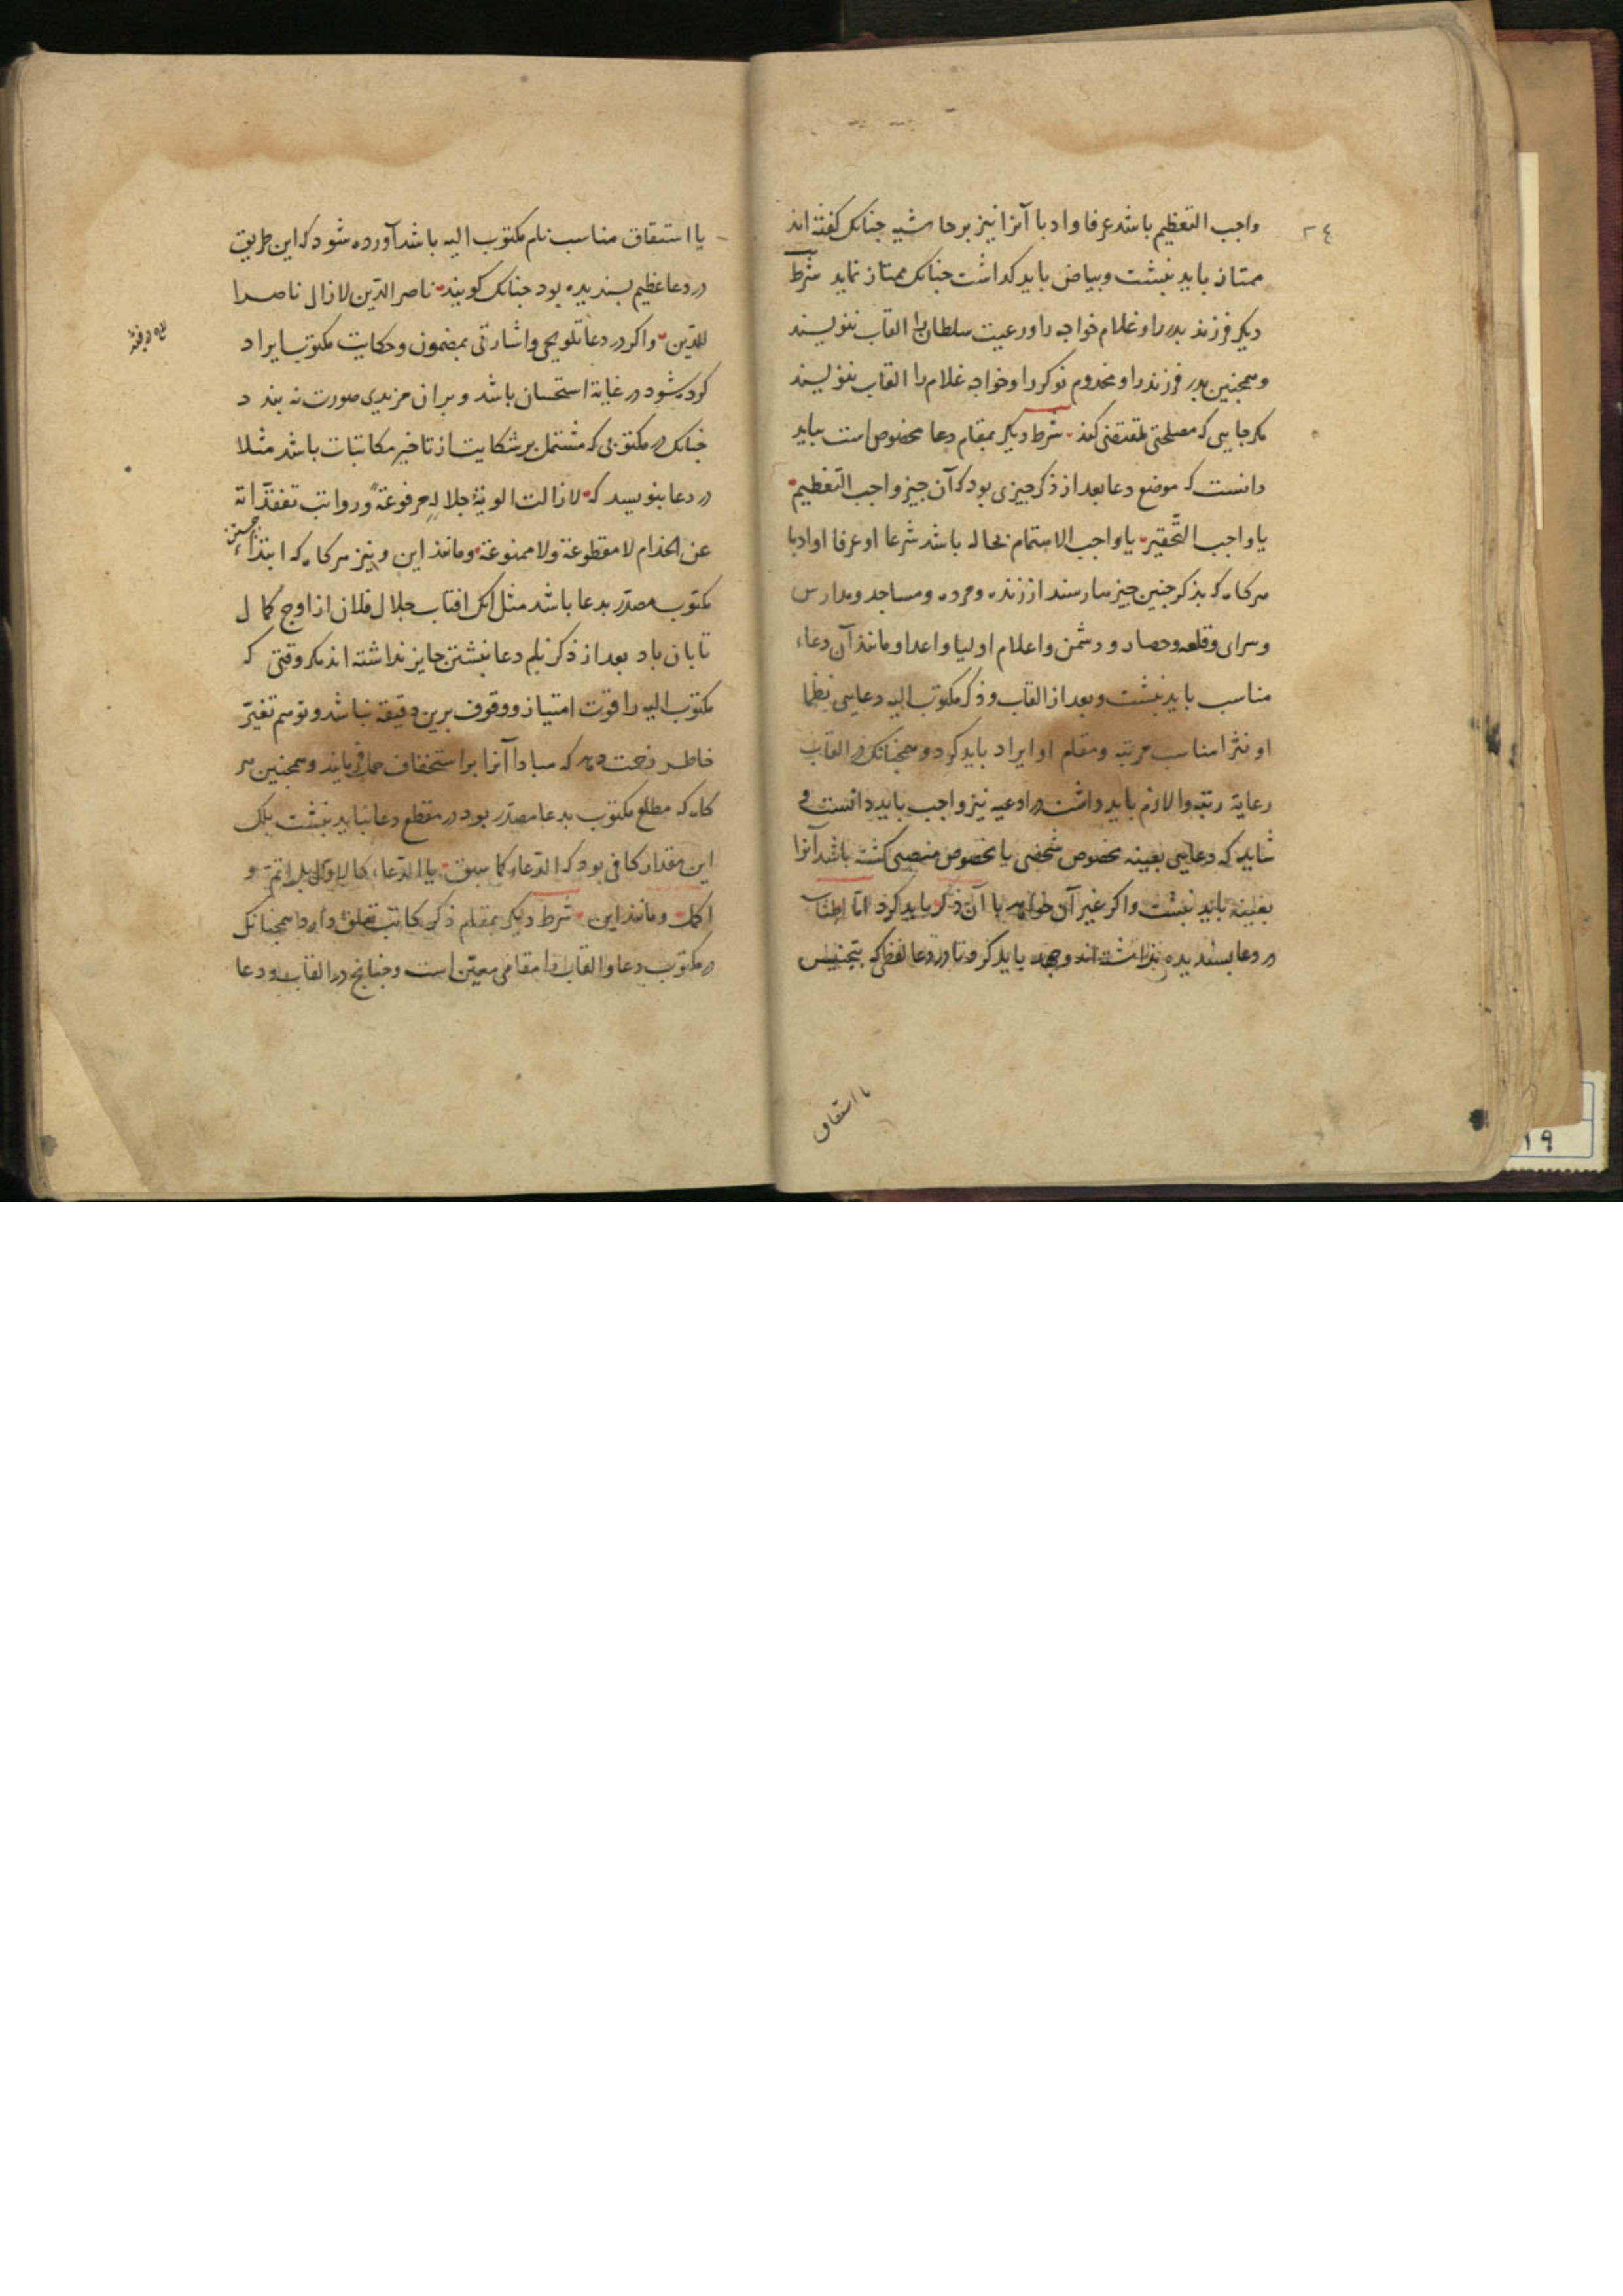 ٢٤
واجب التعظیم باشد عرفا وادبا آنرا نیز بر حاشیه جنانک کفته اند
ممتاز باید نبشت وبیاض باید کذاشت جنانک ممتاز نماید شرط
دیکر فرزند بدر را و غلام خواجه را و رعیت سلطان را القاب ننویسند
وهمجنین بدر فرزند را و مخدوم نوکر را و خواجه غلام را القاب ننویسند
مکر جایی که مصلحتی اقتضی کند شرط دیکر بمقام دعا مخصوص است بباید
دانست که موضع دعا بعد از ذکر جیزی بود که آن جیز واجب التعظیم
یا واجب التحقیر یا واجب الاهتمام بحاله باشد شرعا او عرفا او ادبا
هرکاه که بذکر جنین جیزها رسند از زنده ومرده ومساجد ومدارس
وسرای وقلعه وحصار ودشمن واعلام اولیا واعدا ومانند آن دعاء
مناسب باید نبشت وبعد از القاب وذکر مکتوب الیه دعایی نظما
او نثرا مناسب مرتبه ومقام او ایراد باید کرد وهمجنانک در القاب
رعایة رتبه والازم باید داشت در ادعیه نیز واجب باید دانست و
شاید که دعایی بعینه مخصوص شخصی یا مخصوص منصبی کشته باشد آنرا
بعینه باید نبشت واکر غیر آن خواهد با آن ذکر باید کرد اما اطناب
در دعا بسندیده نداشته اند وجهد باید کرد تا در دعا لفظی که بتجنیس
یا استقاق
یا استقاق مناسب نام مکتوب الیه باشد آورده شود که این طریق
در دعا عظیم بسندیده بود جنانک کویند ناصر الدین لازال ناصرا
للدین واکر در دعا تلویحی واشارتی بمضمون وحکایت مکتوب ایراد
کرده شود در غایة استحسان باشد وبران مزیدی صورت نه بندد
جنانک در مکتوبی که مشتمل بر شکایت از تاخیر مکاتبات باشد مثلا
در دعا بنویسد که لازالت الویة جلاله مرفوعة ورواتب تفقداته
عن الخدام لا مقطوعة ولا ممنوعة ومانند این ونیز هرکاه که ابتداء
مکتوب مصدر بدعا باشد مثل انک افتاب جلال فلان از اوج کمال
تابان باد بعد از ذکر نام دعا نبشتن جایز نداشته اند مکر وقتی که
مکتوب الیه را قوت امتیاز ووقوف برین دقیقه نباشد وتوهم تغیر
خاطر دهد که مبادا آنرا بر استخفاف حمل فرمایند وهمجنین هر
کاه که مطلع مکتوب بدعا مصدر بود در مقطع دعا نباید نبشت بلک
این مقدار کافی بود که الدعاء کما سبق یا الدعاء کالاول بل اتم و
اکمل ومانند این شرط دیکر بمقام ذکر کاتب تعلق دارد همجنانک
در مکتوب دعا والقاب را مقامی معین است وجنانج در القاب ودعا